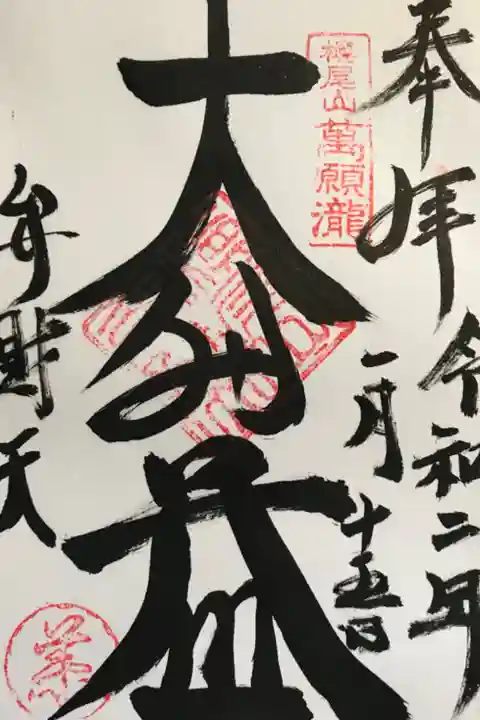 奉拝
令和二年
一月十五日
槇尾山萬願瀧
大
益
弁財天